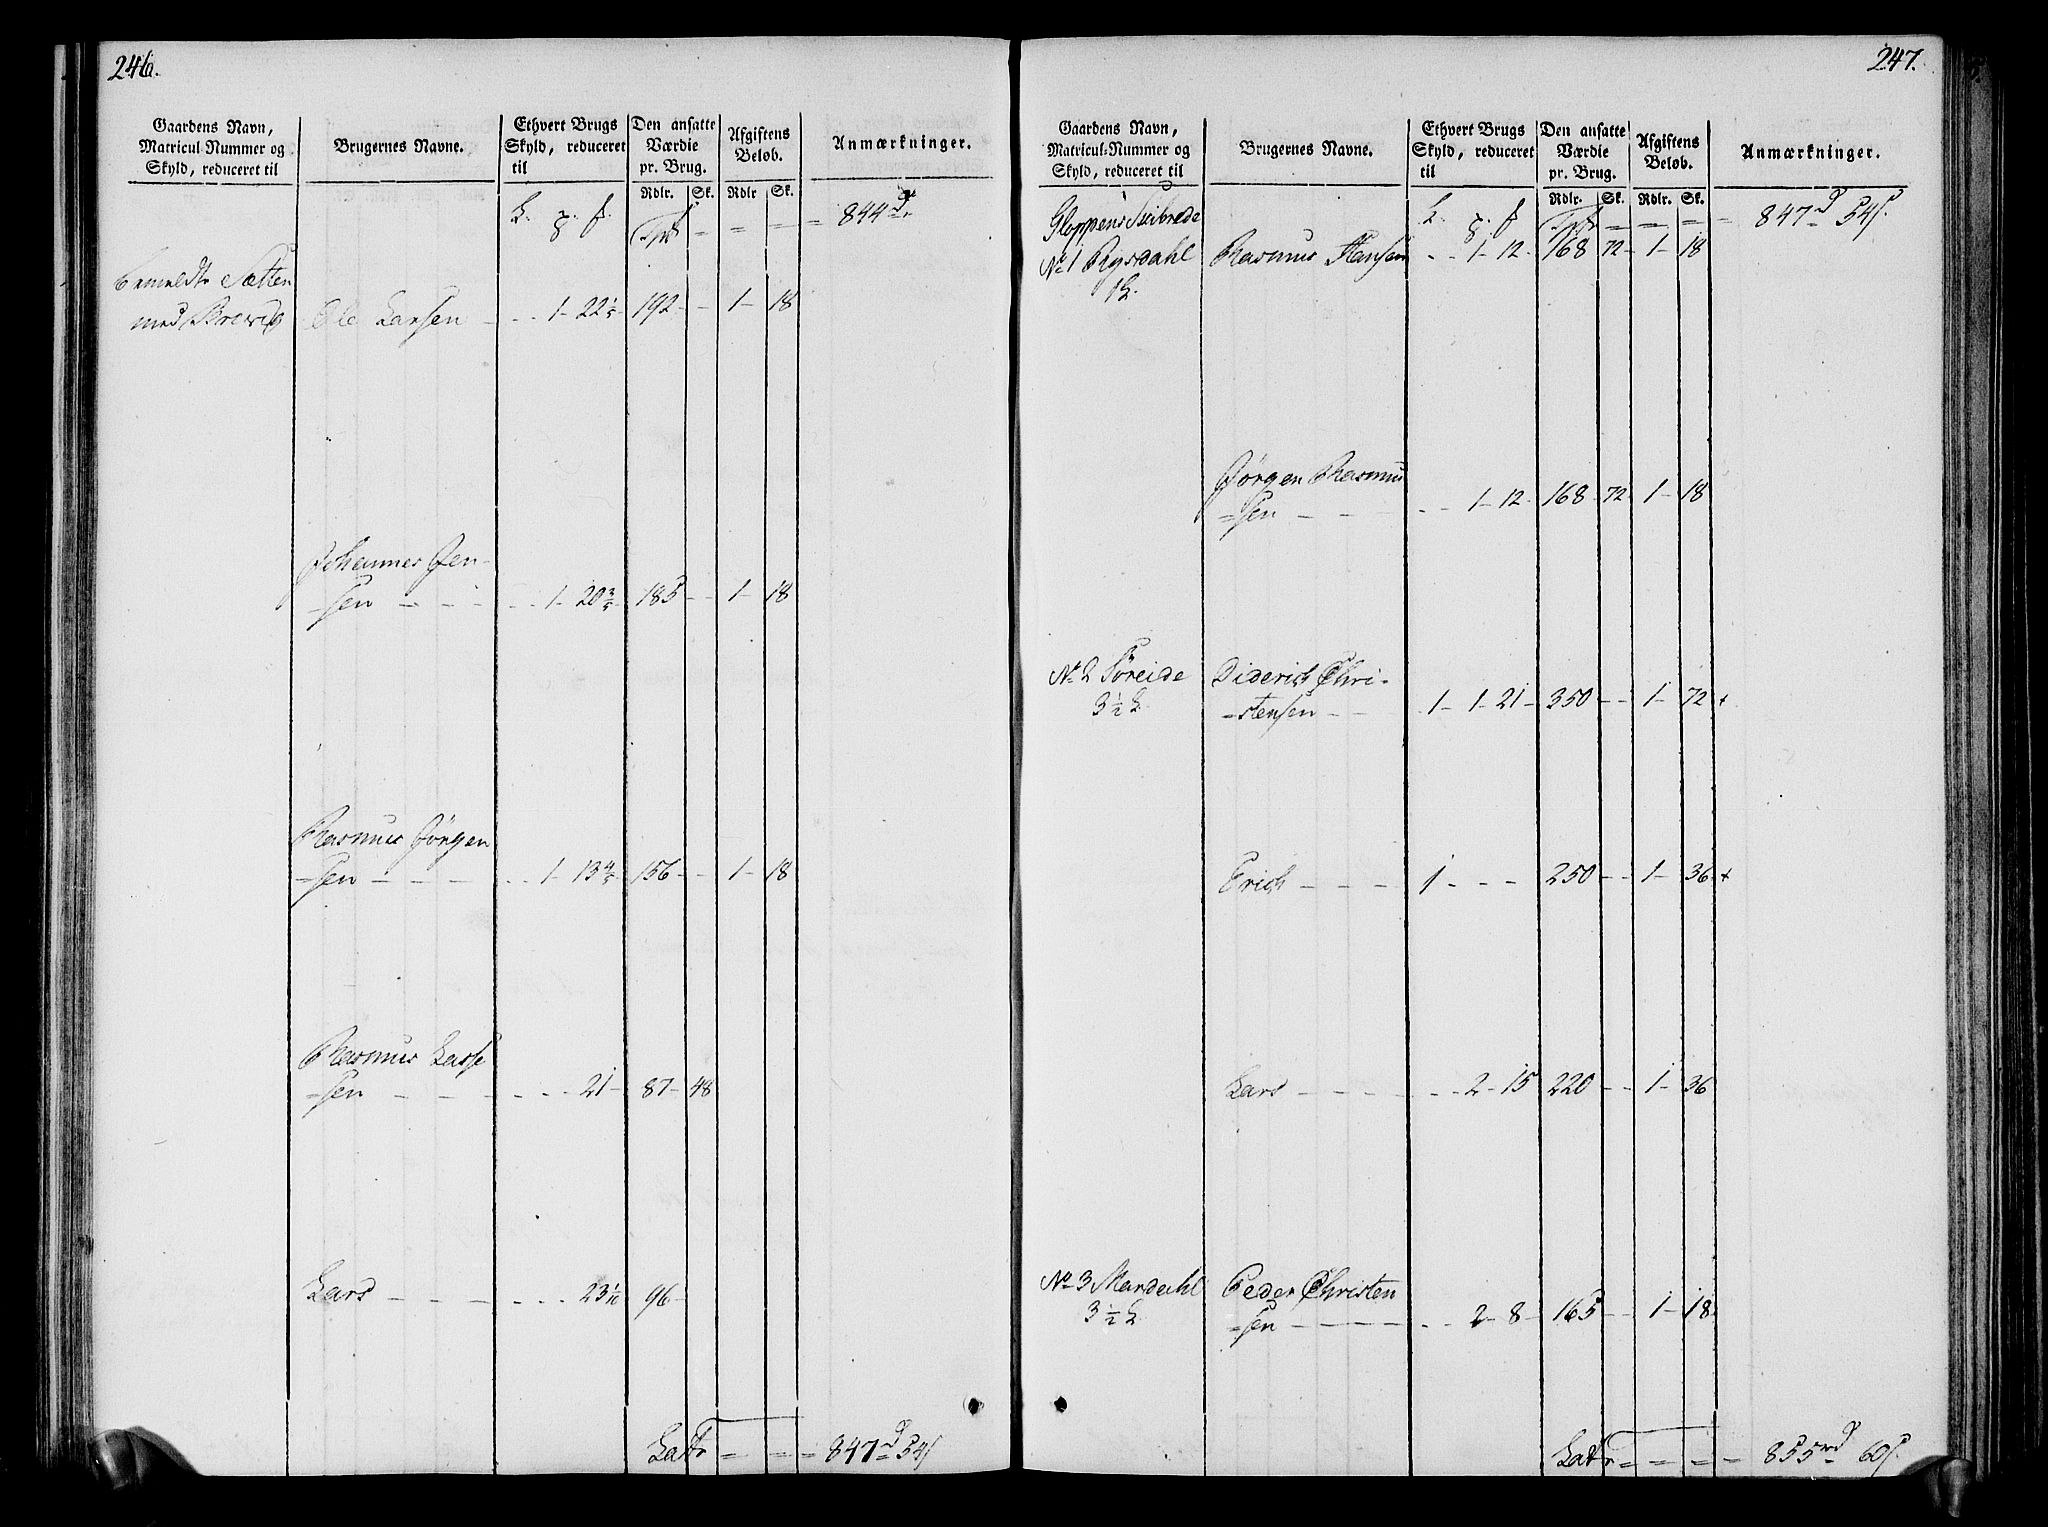 246.
Gaardens Navn,
Matricul Nummer og
Skyld, reduceret til
Brugernes Navne.
Ethvert Brugs
Skyld, reduceret
til
Den ansatte
Værdie
pr. Brug.
Afgiftens
Beløb.
Anmærkninger.
Rdlr. Sk. Rdlr Sk.
844
Bemeldte Sætten
med Brevig Ole Larsen - - - 1 - 22 1/5 192 - - 1 - 18
Johannes Jen-
-sen - - - - - 1 - 20 2/5 185 - - 1 - 18
Rasmus Jørgen
-sen - - - - - 1 - 13 4/5 156 - - 1 - 18
Rasmus Lasse
-sen - - - - - - 21 - 87 - 48
Lars - - - - - - - 23 1/10 96 -
Latr = = = 847 54
247.
Gaardens Navn,
Matricul-Nummer og
Skyld, reduceret til
Brugernes Navne.
Ethvert Brugs
Skyld, reduceret
til
Den ansatte
Værdie
pr. Brug.
Afgiftens
Beløb.
Anmærkninger.
Rdlr. Sk. Rdlr. Sk.
Gloppens Skibrede 847 54
No 1 Rysdahl Rasmus Hansen - - 1 - 12 - 168 72 - 1 - 18
Jørgen Rasmus
-sen - - - - 1 - 12 - 168 - 72 - 1 - 18
No 2 Søreide Diderich Chri-
3 1/2 -stensen - - 1 - 1 - 21 - 350 - - 1 - 72 +
Erich - - - 1 - - - 250 - - 1 - 36 +
Lars - - - - - 2 - 15 220 - - 1 - 36
No 3 Mardahl Peder Christen
3 1/2 -sen - - - - - 2 - 8 - 165 - - 1 - 18
Latr = = = = 855 60